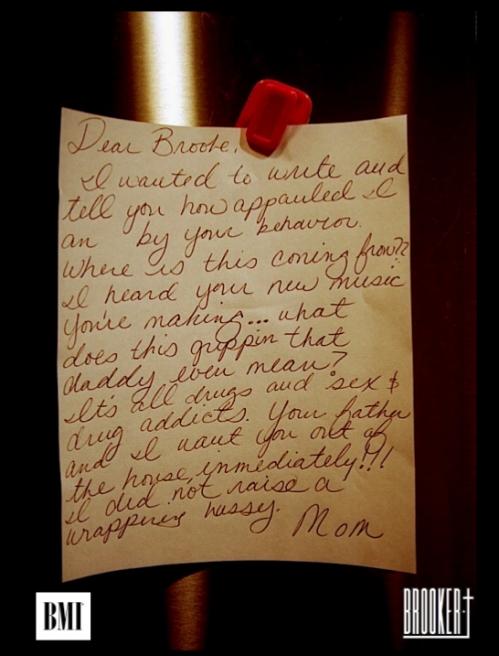 Dear Brooke,
I wanted to write and
tell you how appauled I
am by your behavior.
Where is this coming from??
I heard your new music
You're making... what
does this grippin that
daddy even mean?
It's all drugs and sex &
drug addicts. Your father
and I want you out of
the house, immediately!!!
I did not raise a
wrappering hussy.
Mom
BMI
BROOKER